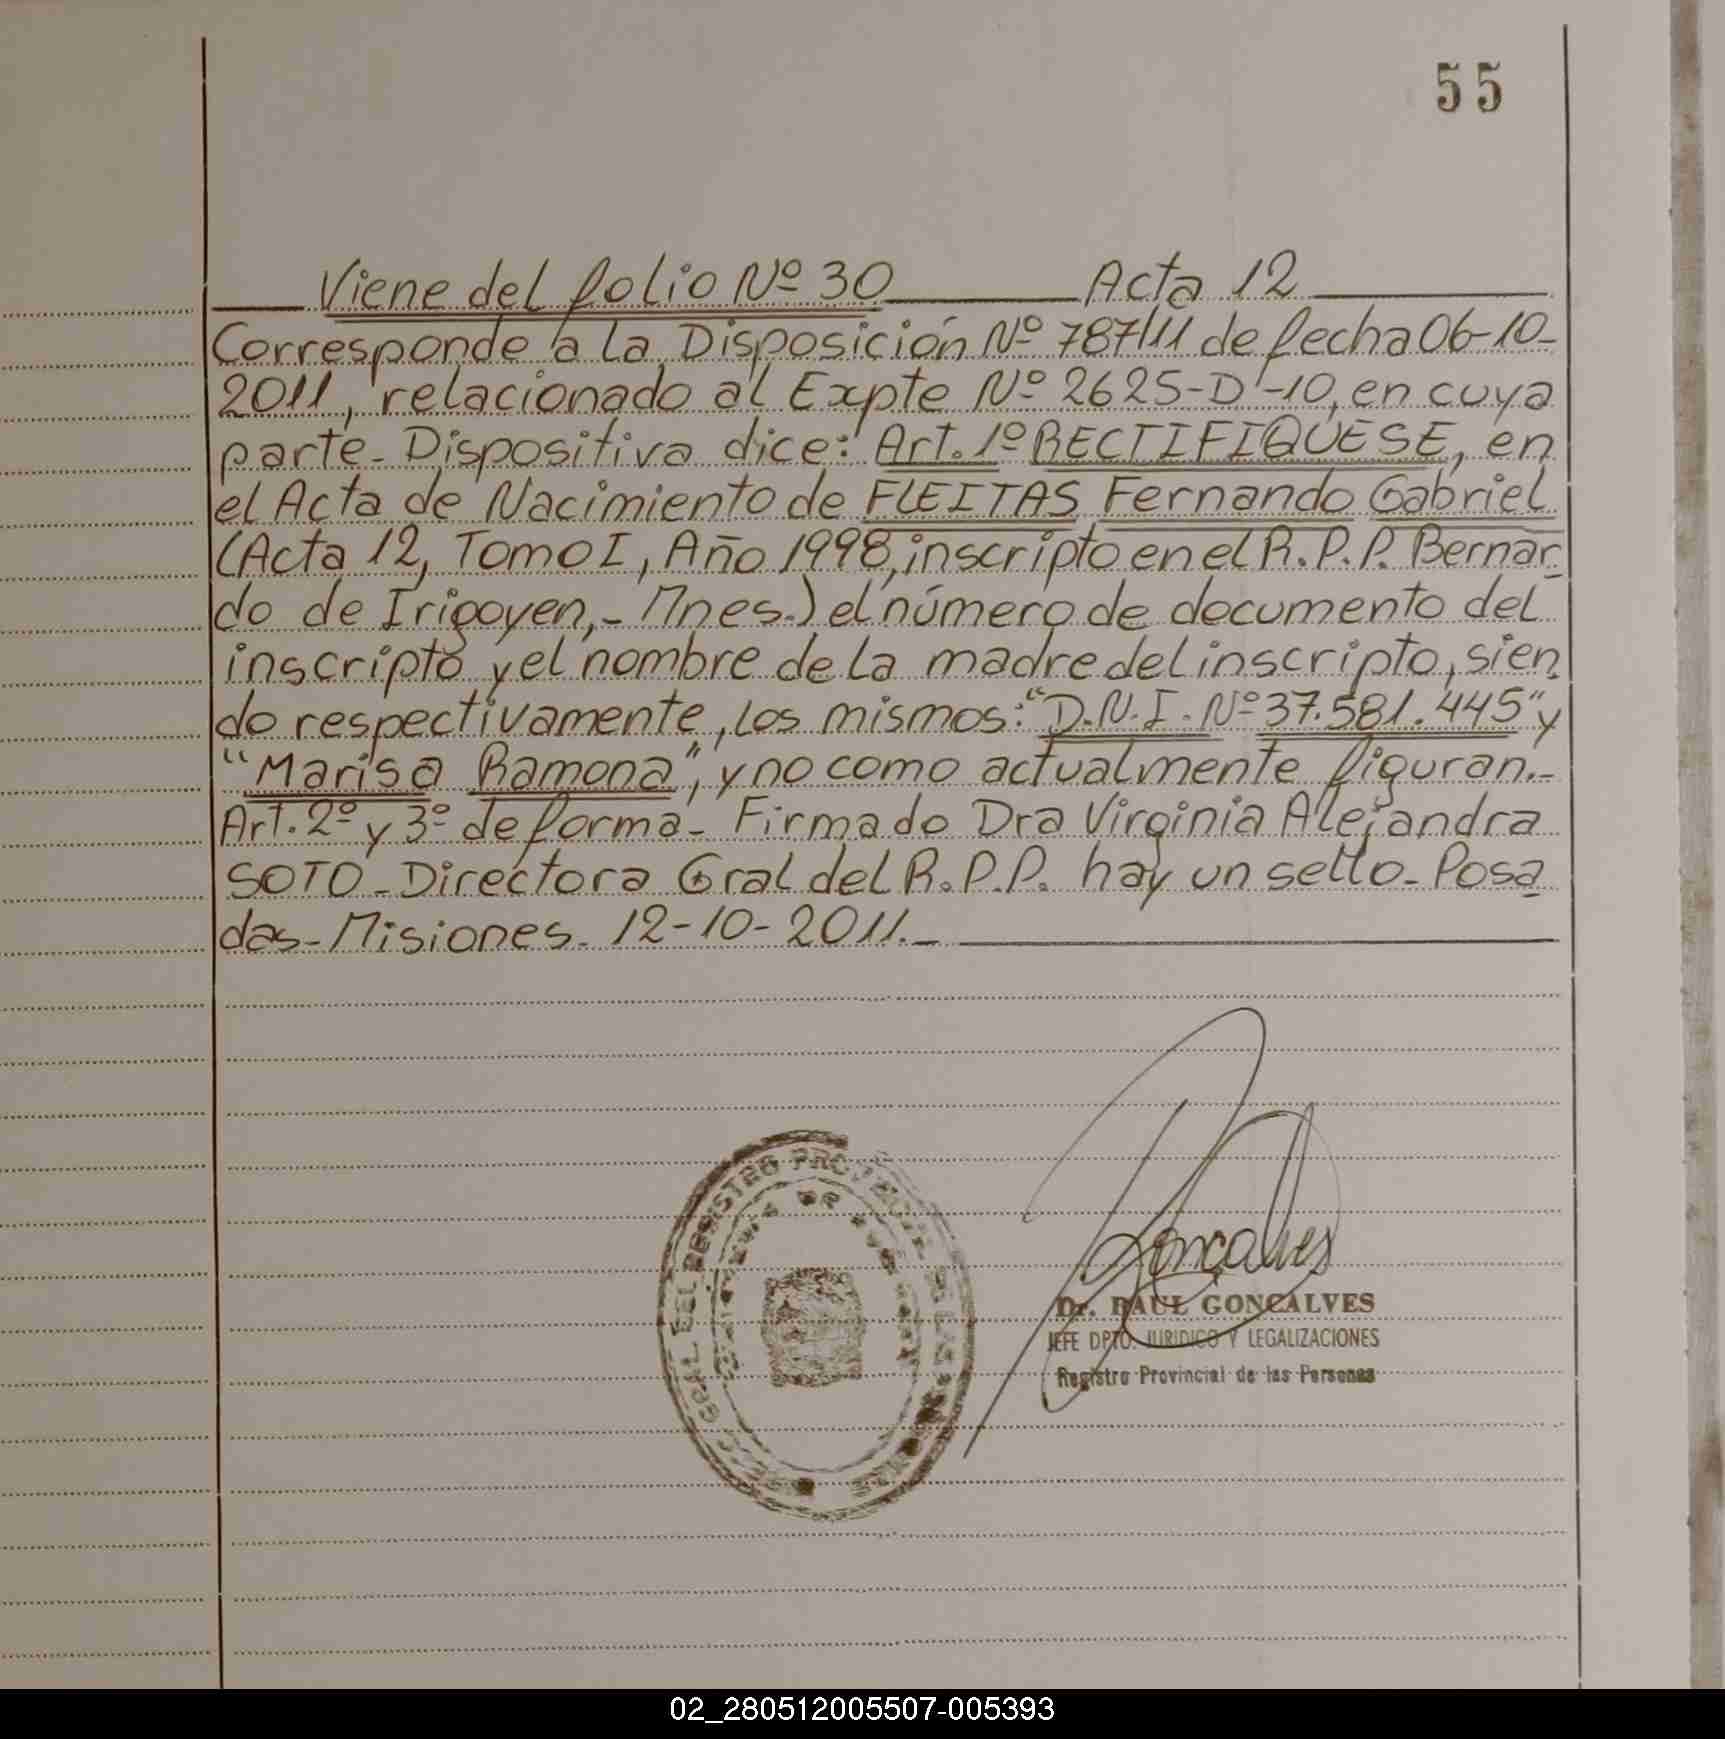 55
Viene del folio Nº 30 Acta 12
Corresponde a la Disposición Nº 787/11 de fecha 06-10-
2011, relacionado al Expte Nº 2625-D-10, en cuya
parte Dispositiva dice: Art. 1º RECTIFIQUESE, en
el Acta de Nacimiento de FLEITAS Fernando Gabriel
(Acta 12, Tomo I, Año 1998, inscripto en el R.P.P. Bernar-
do de Irigoyen,- Mnes.) el número de documento del
inscripto y el nombre de la madre del inscripto, sien-
do respectivamente, los mismos: "D.N.I. Nº 37.581.445" y
"Marisa Ramona", y no como actualmente figuran.-
Art. 2º y 3º de forma- Firmado Dra Virginia Alejandra
SOTO- Directora Gral del R.P.P. hay un sello- Posa
das- Misiones- 12-10-2011.-
Goncalves
Dr. RAUL GONCALVES
JEFE DPTO. JURIDICO Y LEGALIZACIONES
Registro Provincial de las Personas
GRAL DEL REGISTRO PROVINCIAL DE LAS
DE
02_280512005507-005393